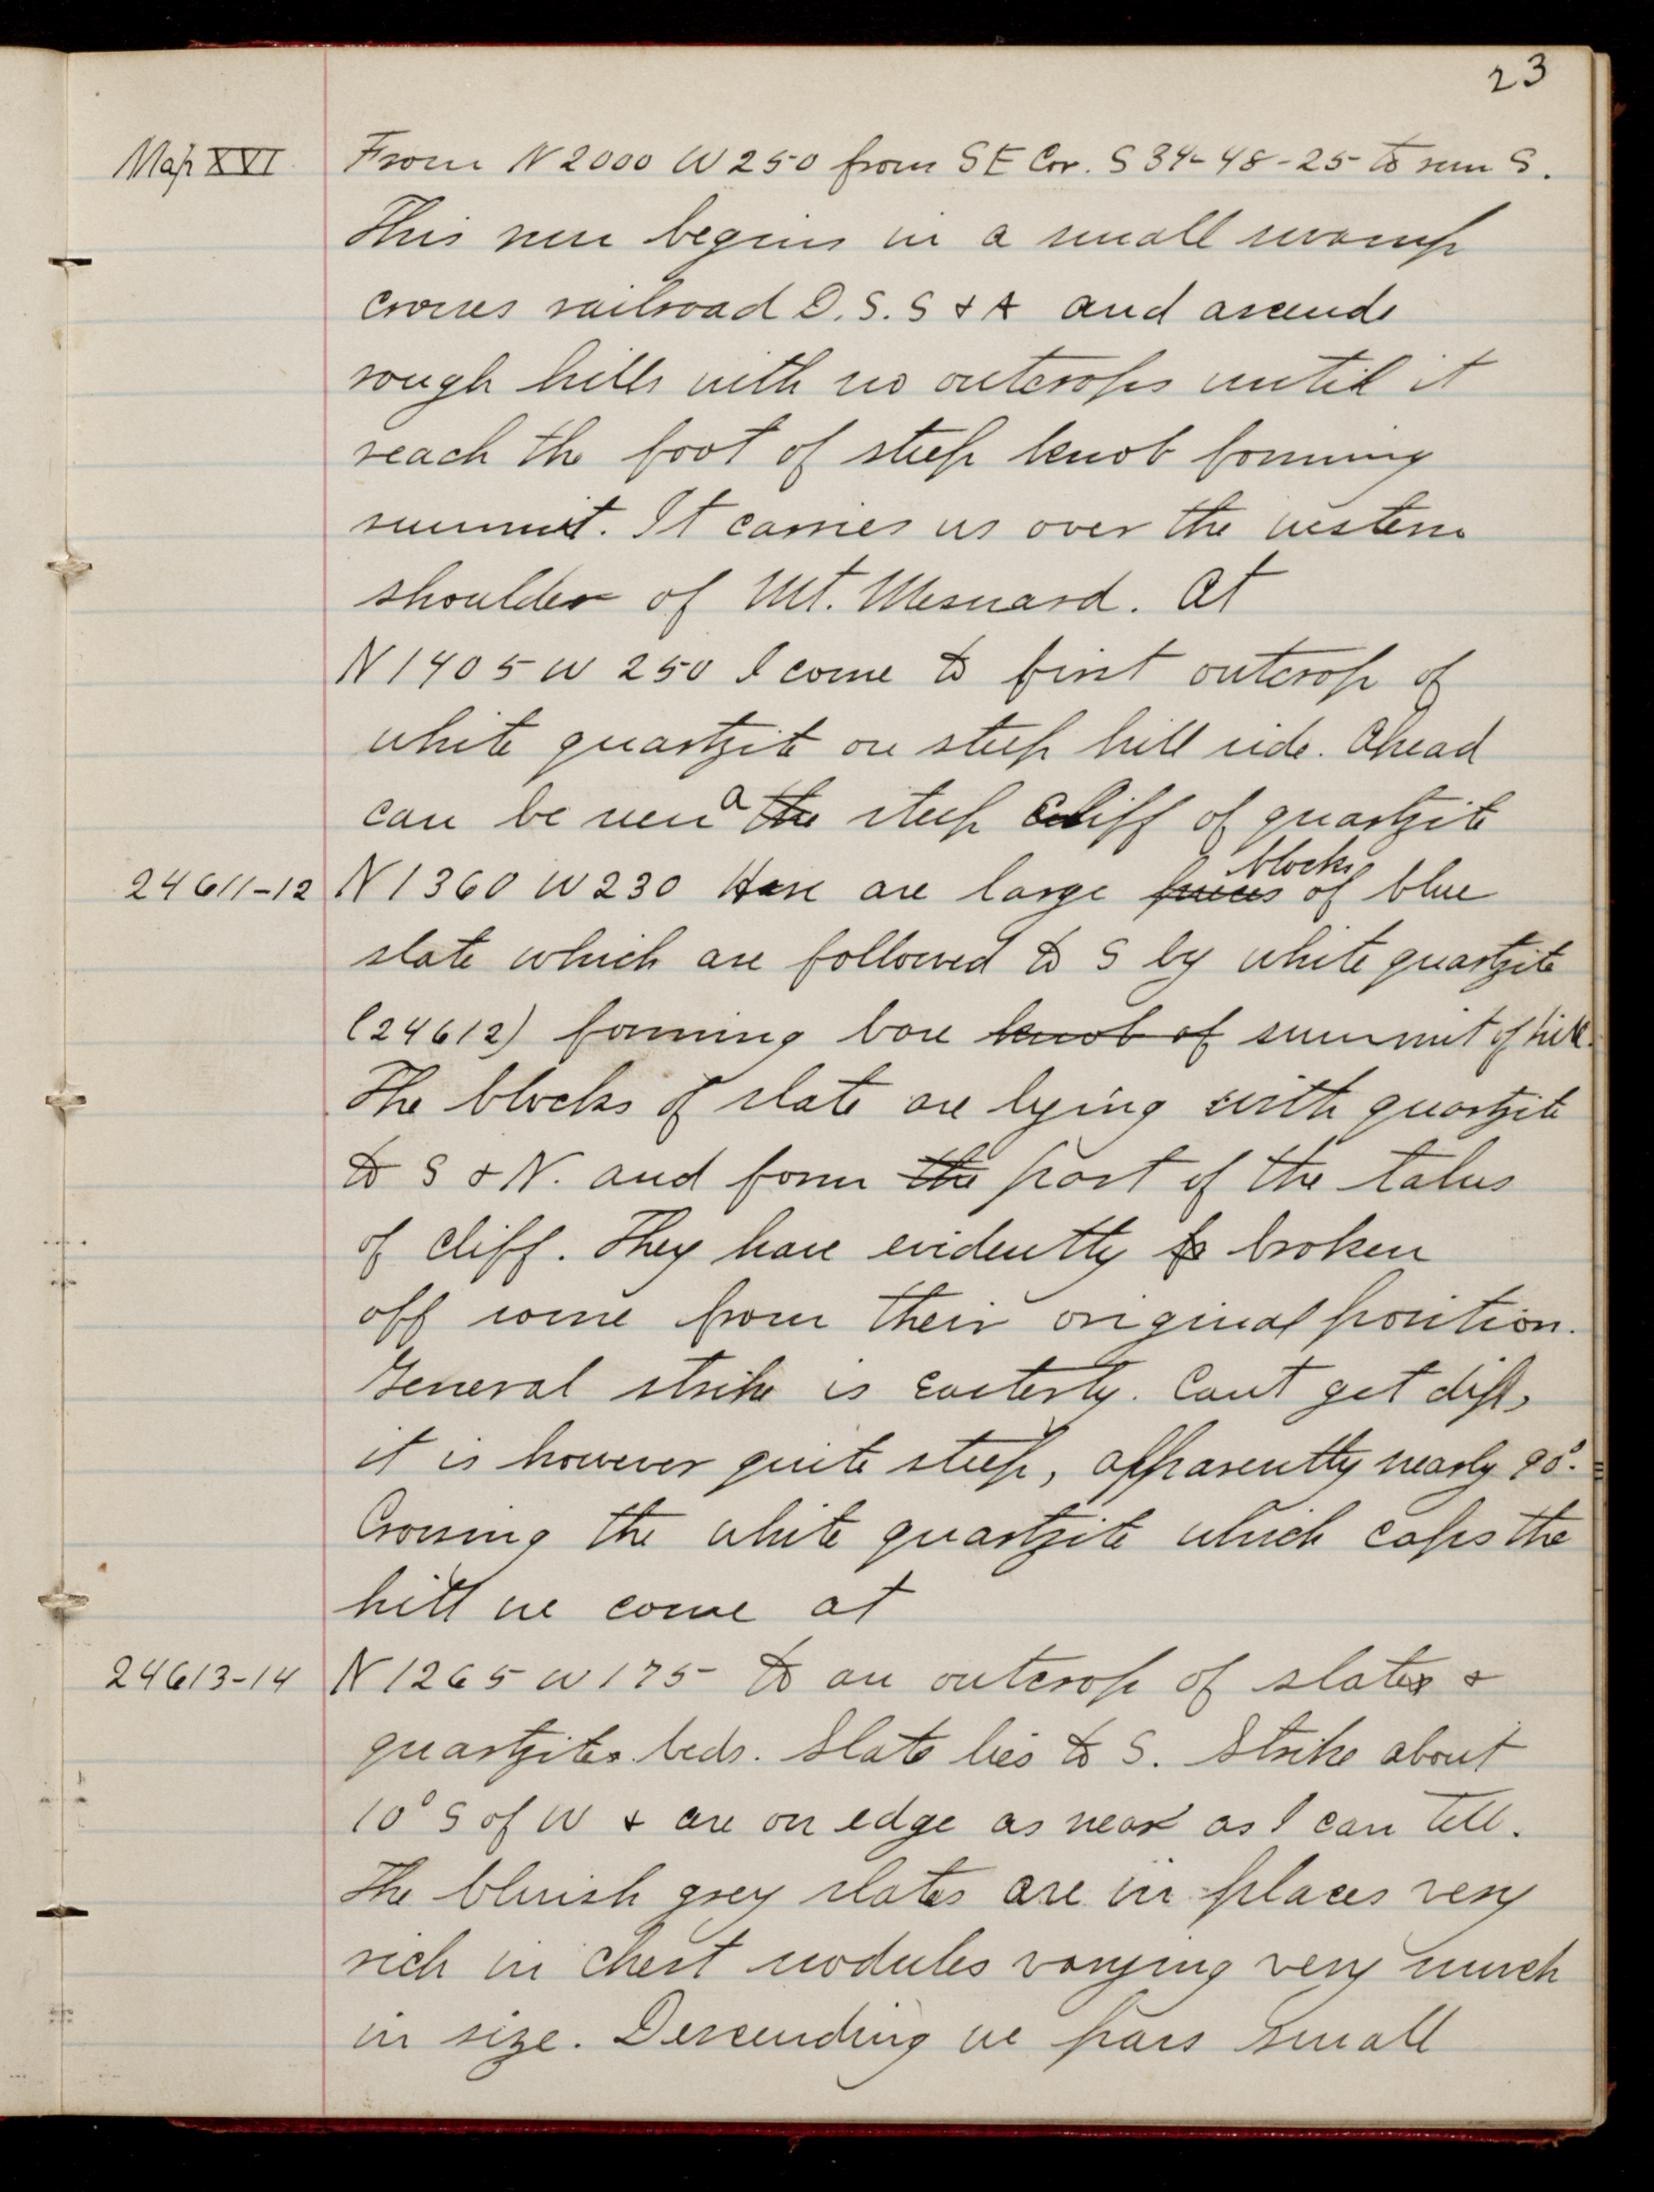 23
Map XVI From N 2000 W 250 from S E Cor. S 34-48-25 to run S.
This run begins in a small swamp
crosses railroad D. S. S & A and ascends
rough hills with no outcrops until it
reach the foot of steep knob forming
summit. It carries us over the western
shoulder of Mt. Mesnard. At
N 1405 W 250 I come to first outcrop of
white quartzite on steep hill side. Ahead
can be seen a the steep cliff of quartzite
24611-12 N 1360 W 230 Here are large pieces blocks of blue
slate which are followed to S by white quartzite
(24612) forming bare knob of summit of hill.
The blocks of slate are lying with quartzite
to S & N. and form the part of the talus
of cliff. They have evidently broken
off some from their original position.
General strike is easterly. Cant get dip,
it is however quite steep, apparently nearly 90°.
Crossing the white quartzite which caps the
hill we come at
24613-14 N 1265 W 175 to an outcrop of slates &
quartzites beds. Slate lies to S. Strike about
10° S of W & are on edge as near as I can tell.
The bluish grey slates are in places very
rich in chert nodules varying very much
in size. Descending we pass small